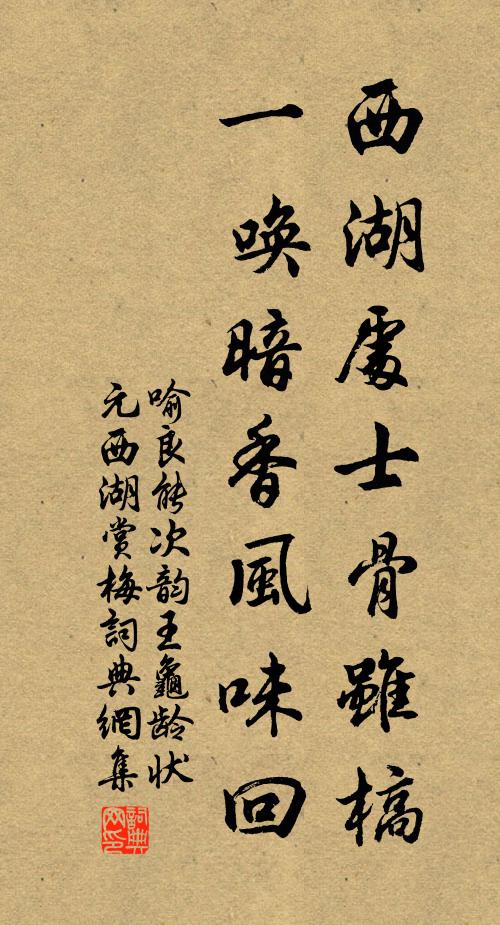 西湖處士骨雖槁
一喚暗香風味回
喻良能次韵王龜龄状
元西湖賞梅詞典網集
詞典
网印